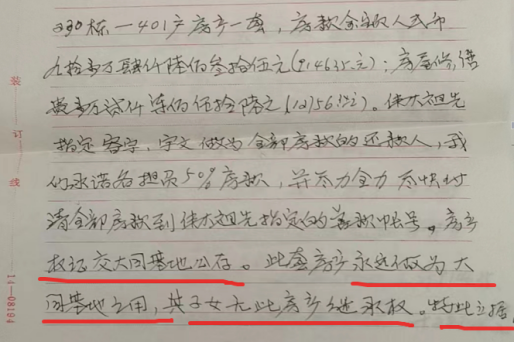 230栋一401户房产一套，房款金额人民币
九拾壹万肆仟陆佰叁拾伍元（914635元）；房屋修缮
壹万贰仟柒佰伍拾陆元（12756元）。伟大祖先
指定 字、字文做为全部房款的还款人，我
们承诺各担负50%房款，并尽力全力尽快付
清全部房款到伟大祖先指定的兹款帐号。房产
权证交大同基地公存。此套房产永远做为大
同基地之用，其子女无此房产继承权。特此立据，
装
订
线
14-08194